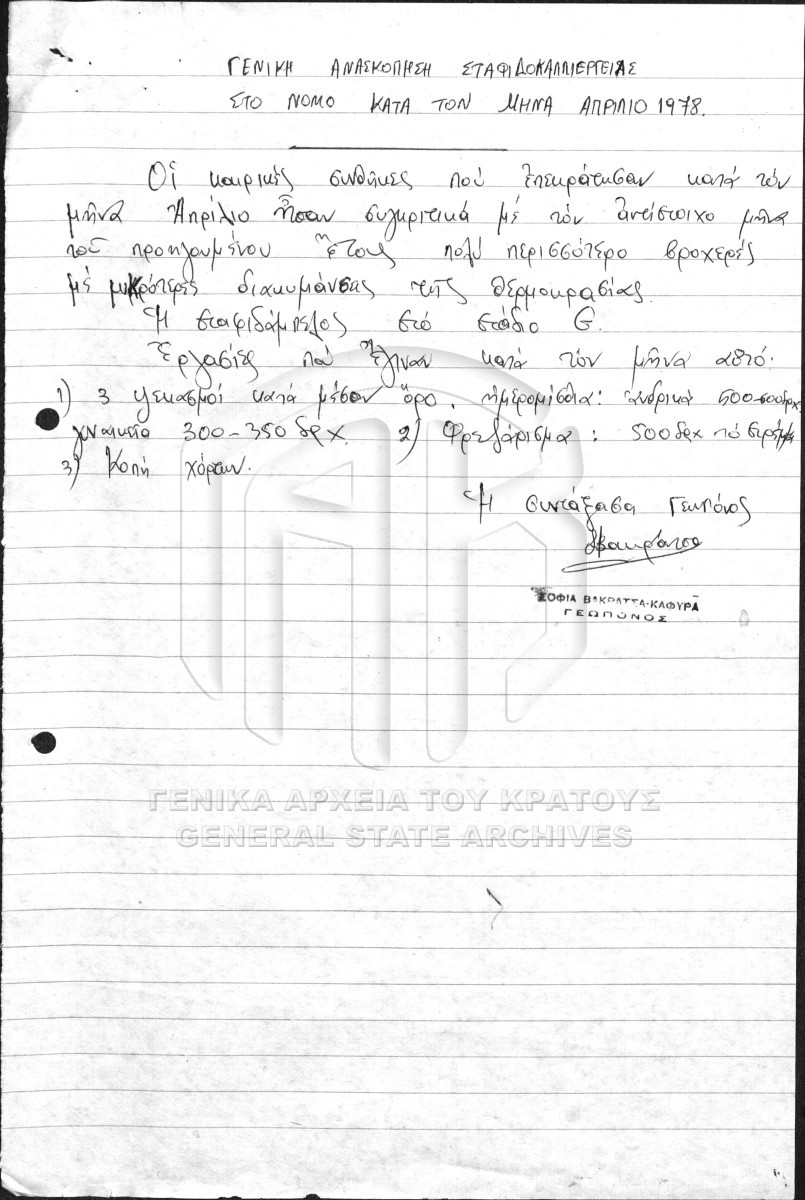 ΓΕΝΙΚΗ ΑΝΑΣΚΟΠΗΣΗ ΣΤΑΦΙΔΟΚΑΛΛΙΕΡΓΕΙΑΣ
ΣΤΟ ΝΟΜΟ ΚΑΤΑ ΤΟΝ ΜΗΝΑ ΑΠΡΙΛΙΟ 1978.
Οἱ καιρικές συνθῆκες πού ἐπεκράτησαν κατά τόν
μῆνα Ἀπρίλιο ἦσαν συγκριτικά μέ τόν ἀντίστοιχο μῆνα
τοῦ προηγουμένου ἔτους πολύ περισσότερο βροχερές
μέ μικρότερες διακυμάνσεις τῆς θερμοκρασίας.
Ἡ σταφιδάμπελος στό στάδιο G.
Ἐργασίες πού ἔγιναν κατά τόν μῆνα αὐτό:
1) 3 ψεκασμοί κατά μέσον ὅρο. ἡμερομίσθια: ἀνδρικά 500-600 δρχ
γυναικεῖα 300-350 δρχ. 2) Φρεζάρισμα: 500 δρχ τό στρέμμα
3) Κοπή χόρτων.
Ἡ συντάξασα Γεωπόνος
ΣΟΦΙΑ ΒΑΚΡΑΤΣΑ-ΚΑΦΥΡΑ
ΓΕΩΠΟΝΟΣ
ΓΕΝΙΚΑ ΑΡΧΕΙΑ ΤΟΥ ΚΡΑΤΟΥΣ
GENERAL STATE ARCHIVES